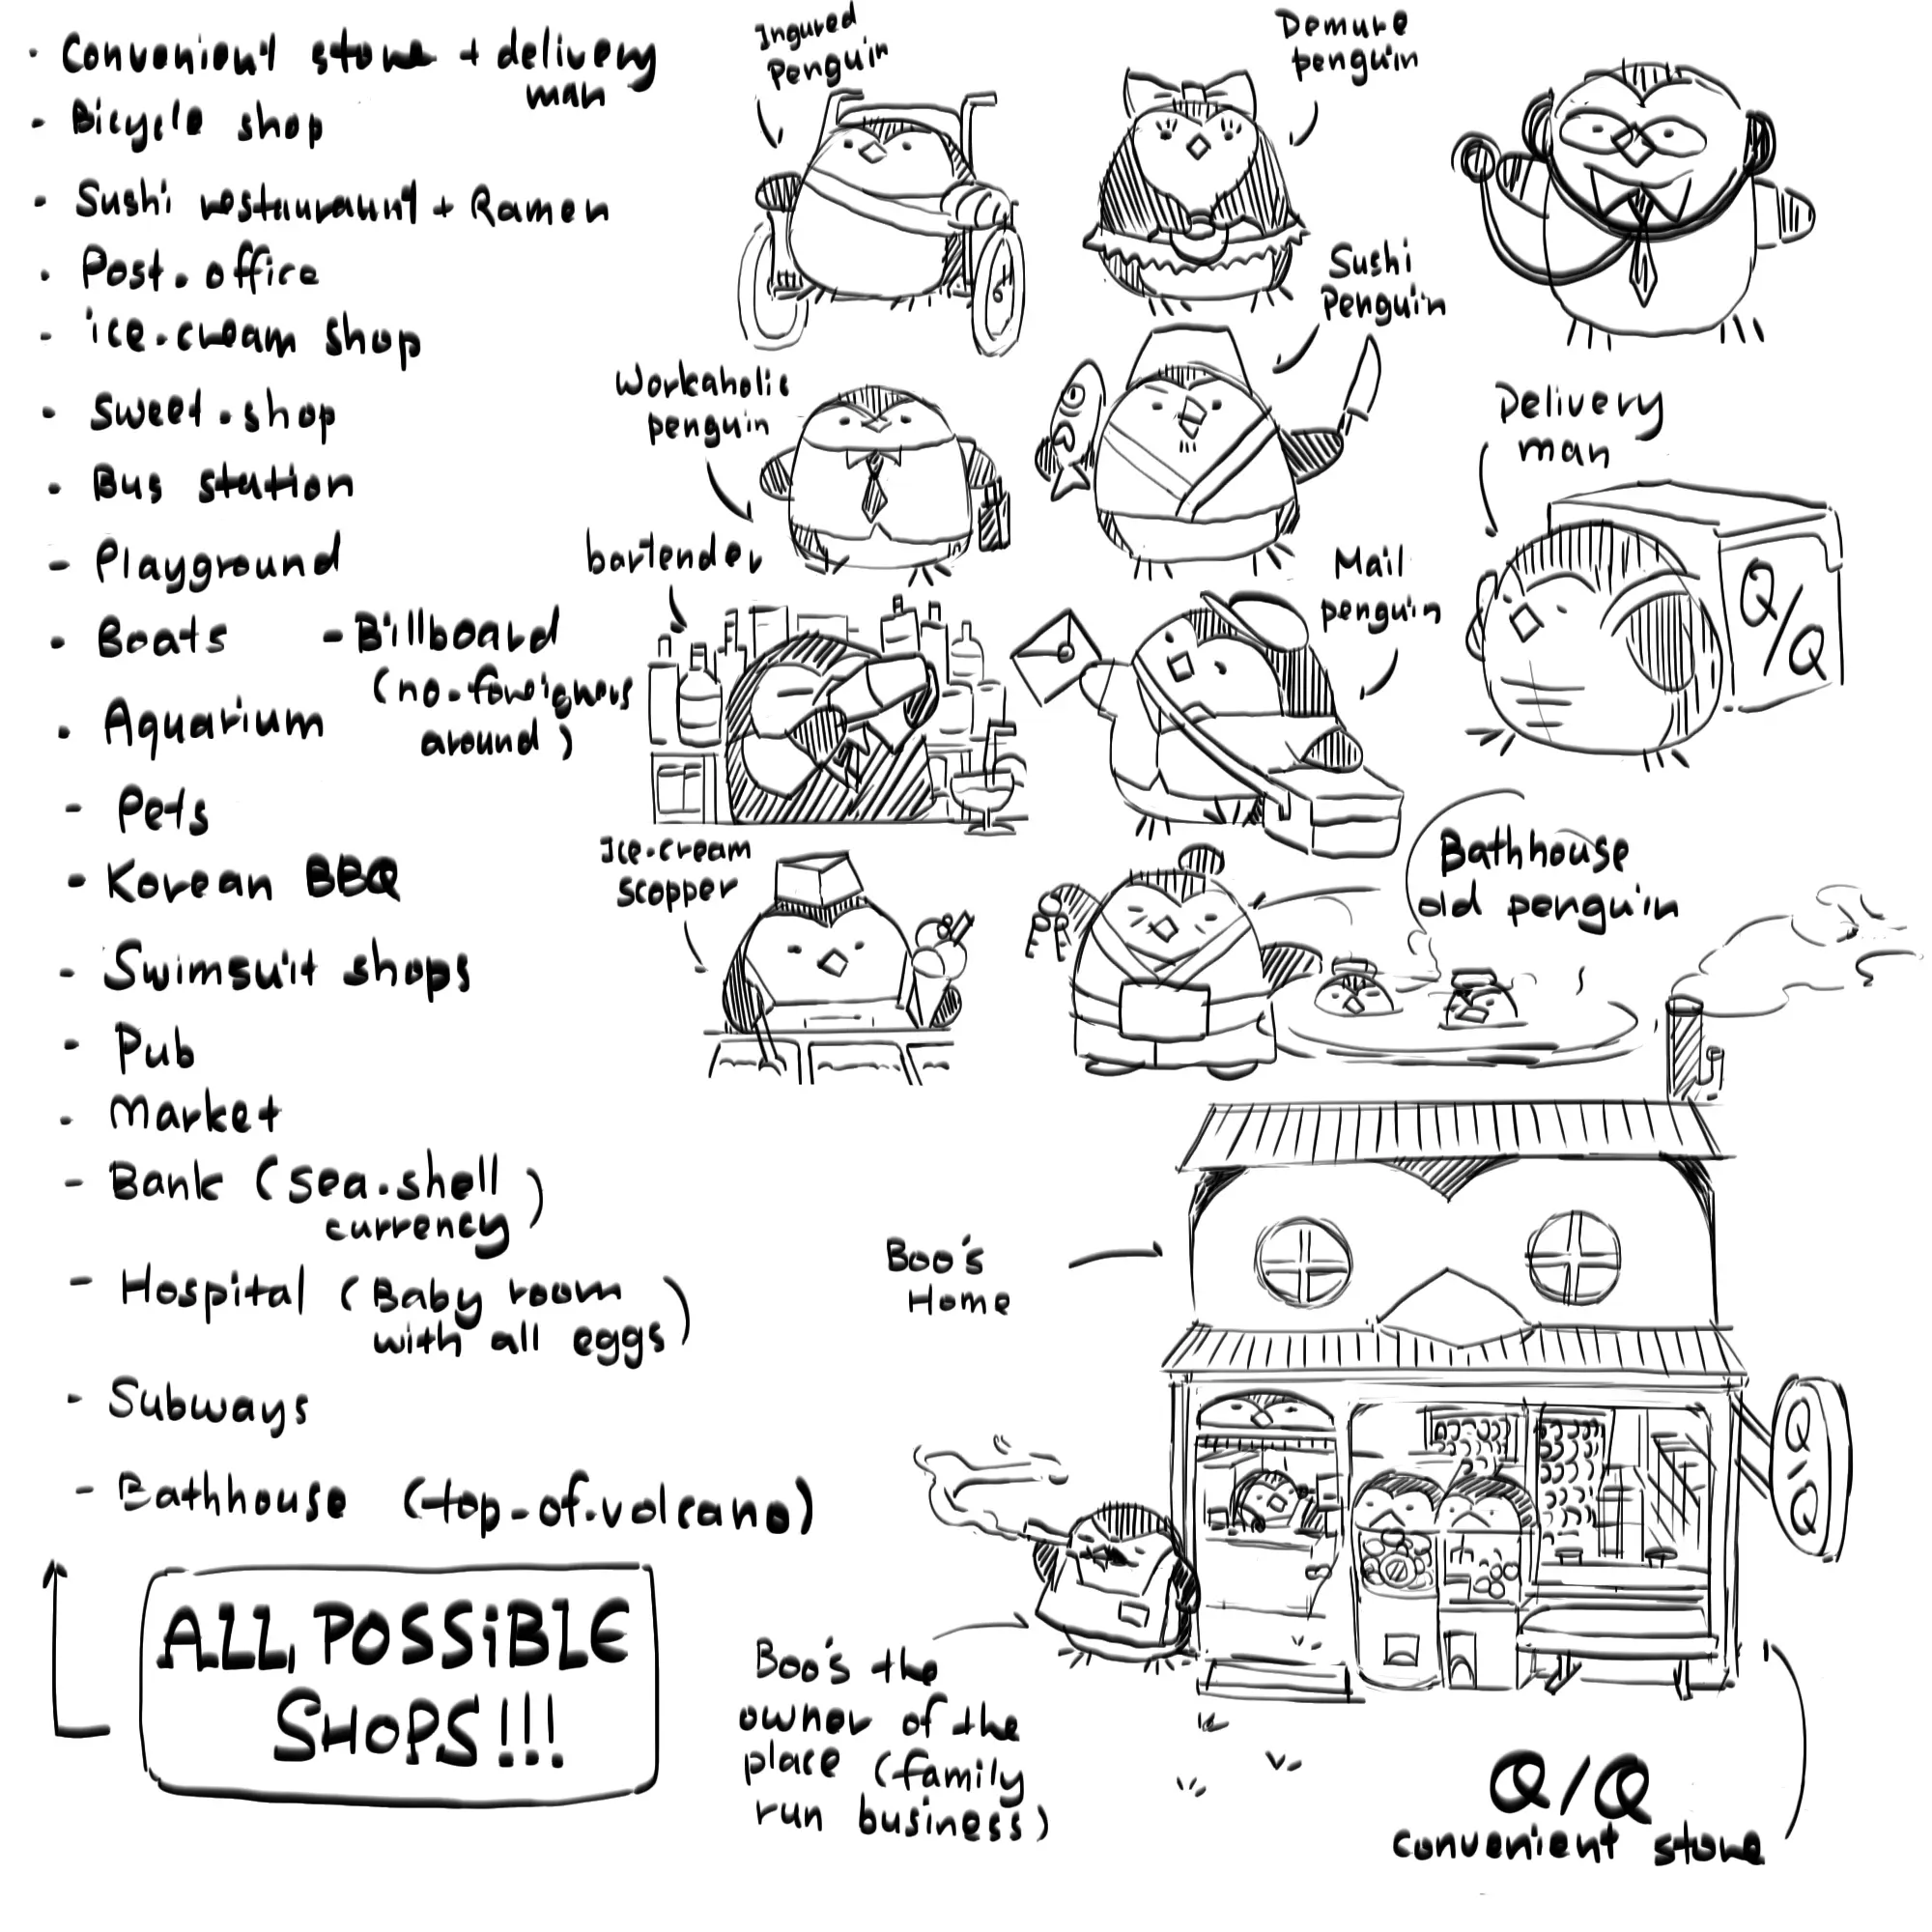 · Convenient store + delivery
man
- Bicycle shop
· Sushi restauraunt + Ramen
· Post.office
- ice-cream shop
· Sweet.shop
· Bus station
- Playground
· Boats
- Billboard
(no-foreigners
around)
· Aquarium
- Pets
- Korean BBQ
- Swimsuit shops
- Pub
· Market
- Bank (sea-shell
currency)
- Hospital (Baby room
with all eggs)
- Subways
- Bathhouse (top-of-volcano)
ALL POSSiBLE
SHOPS!!!
Ingured
Penguin
Demure
penguin
Sushi
Penguin
Workaholic
penguin
Delivery
man
Q/Q
bartender
Mail
penguin
Ice-cream
scopper
Bathhouse
old penguin
Boo's
Home
Q/Q
Boo's the
owner of the
place (family
run business)
Q/Q
convenient store